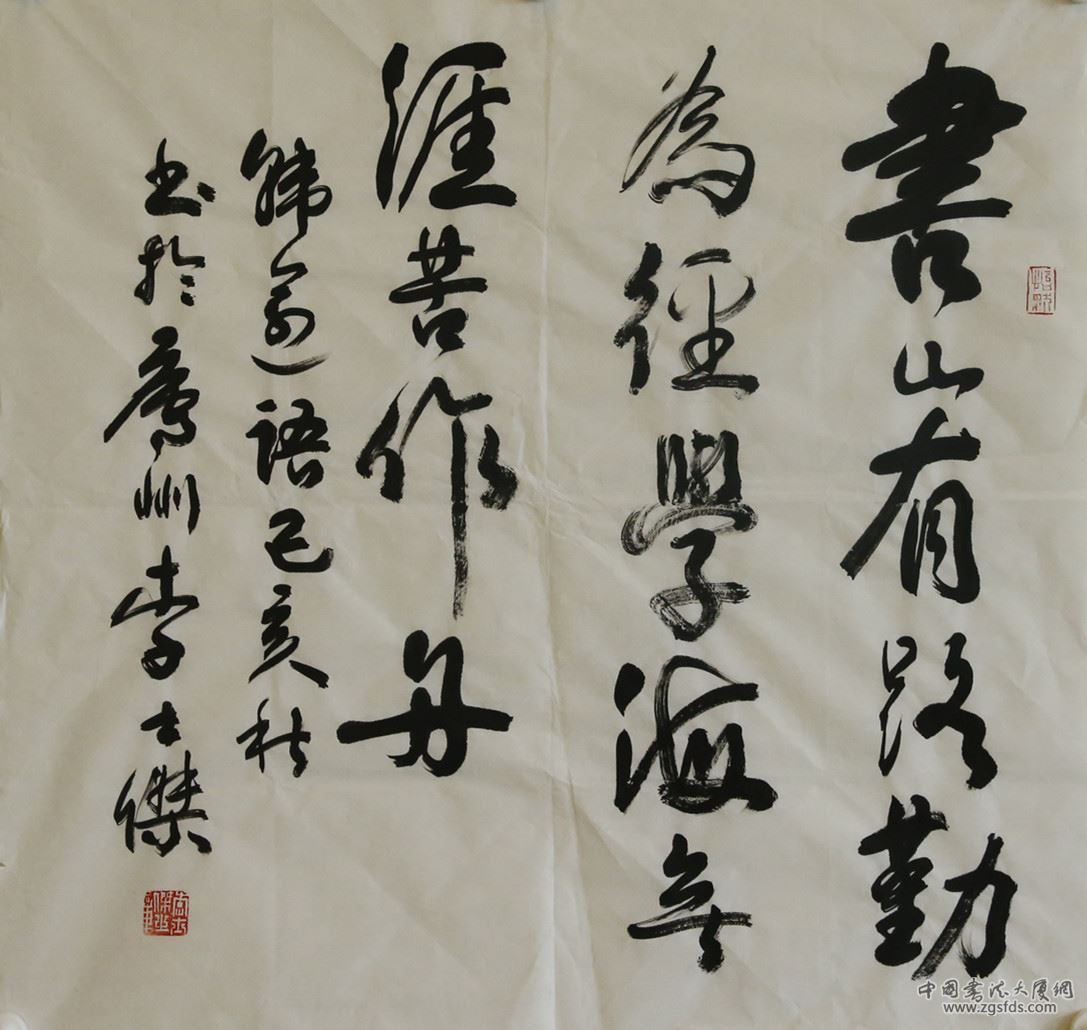 書山有路勤
為徑學海無
涯苦作舟
韓愈語己亥秋
書於廣州李士傑
中国书法大厦網
www.zgsfds.com